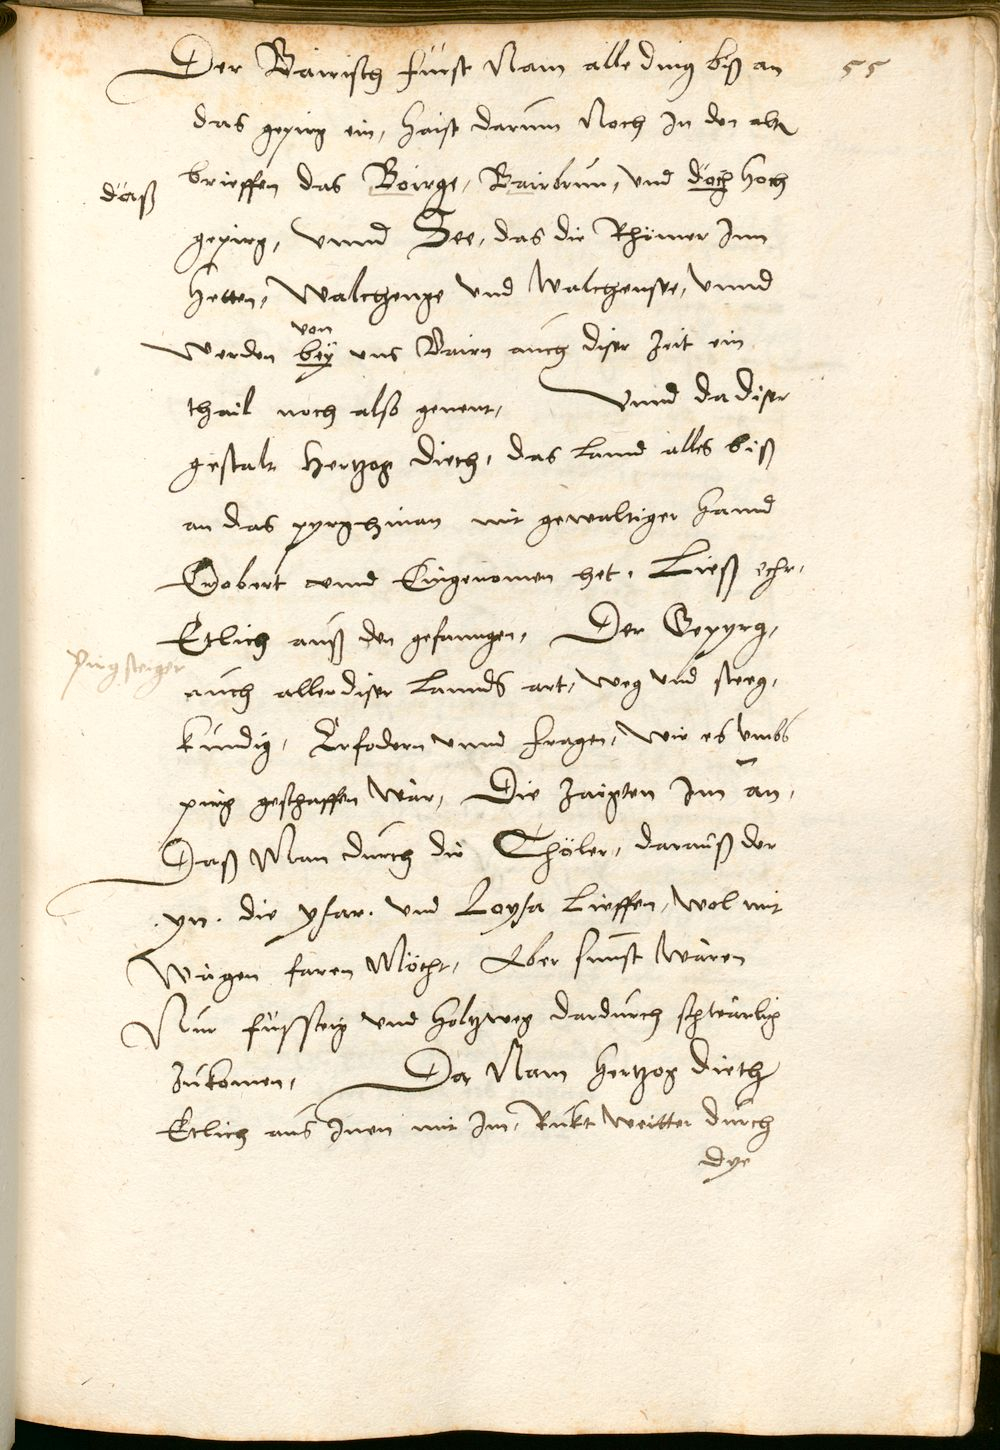 55
Der Bairisch fürst Nam alle ding biß an
das gepirg ein, haist darumb Noch In den altn
daß
brieffen das Boirge, Bairbrun, vnd doch hoch
gepirg, vnnd See, das die Rhömer Inn
hetten, Walchenge vnd Walchensee, vnnd
von
Werden bey vns Bairn auch diser Zeit ein
thail noch also genent, Vnnd da diser
gestalt Hertzog Dieth, das Lannd alles biß
an das pyrg hinan mit gewaltiger hannd
Erobert vnnd Eingenomen het, Ließ ehr,
Etlich auß den gefanngen, Der Gepyrg,
Pirgsteiger
auch aller diser Lannds art, weg vnd steeg,
kündig, Erfodern vnnd fragen, wie es vmbs
pirg geschaffen wär, Die Zaigten Im an,
Daß Man durch die Thöler, darauß der
yn. die ysar. vnd Loysa Lieffen, wol mit
Wägen faren Möcht, Aber sunst Wären
Nur füssteig vnd Holtzweg dardurch schwärlich
Zukomen, Da Nam Hertzog Dieth
Etlich aus Inen mit Im, Rukt weitter durch
dye